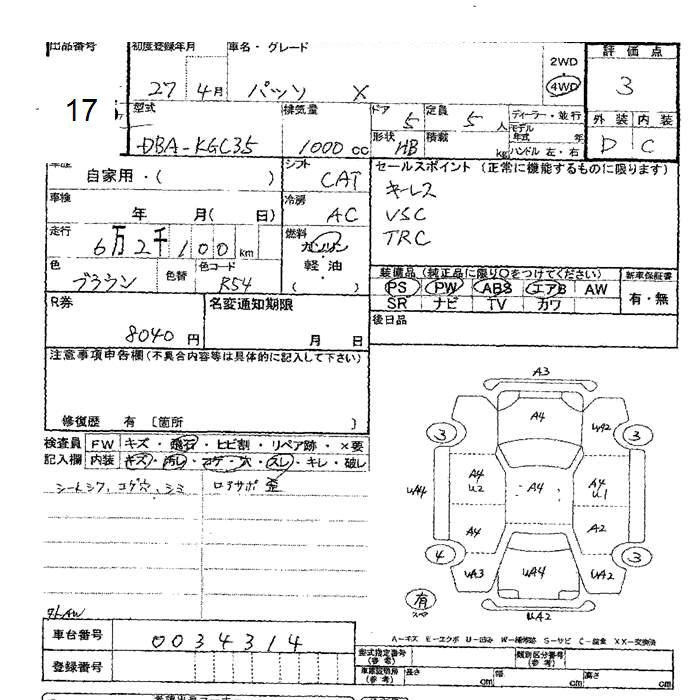 出品番号 初度登録年月 車名・グレード 評価点
27 4月 パッソ X 2WD 4WD 3
17 型式 排気量 ドア 定員 ディーラー・並行 外装 内装
DBA-KGC35 1000 cc 5 5人 モデル年式 年 D C
形状 HB 積載 kg ハンドル 左・右
車歴 シフト セールスポイント (正常に機能するものに限ります)
自家用・( ) CAT キーレス
車検 冷房 VSC
年 月( 日) AC TRC
走行 6万2千100km 燃料 ガソリン
軽油
( )
色 ブラウン 色替 色コード R54
装備品(純正品に限り○をつけてください) 新車保証書
PS PW ABS エアB AW 有・無
SR ナビ TV カワ
R券 名変通知期限 後日品
8040円 月 日
注意事項申告欄(不具合内容等は具体的に記入して下さい)
修復歴 有 [箇所 ]
検査員 FW キズ・飛石・ヒビ割・リペア跡・×要
記入欄 内装 キズ・汚レ・コゲ・穴・スレ・キレ・破レ
シートシワ、コゲ穴、シミ ロアサポ歪
A3
A4
3 UA2 3
A4 U2 A4 A4 U1
UA4
A4 A2
4 3
UA3 UA4 UA2
有
スペア UA2
A-キズ E-エクボ U-凹み W-補修跡 S-サビ C-腐食 XX-交換済
車台番号 0034314
登録番号
型式指定番号(参考) 類別区分番号(参考)
長さ cm 幅 cm 高さ cm